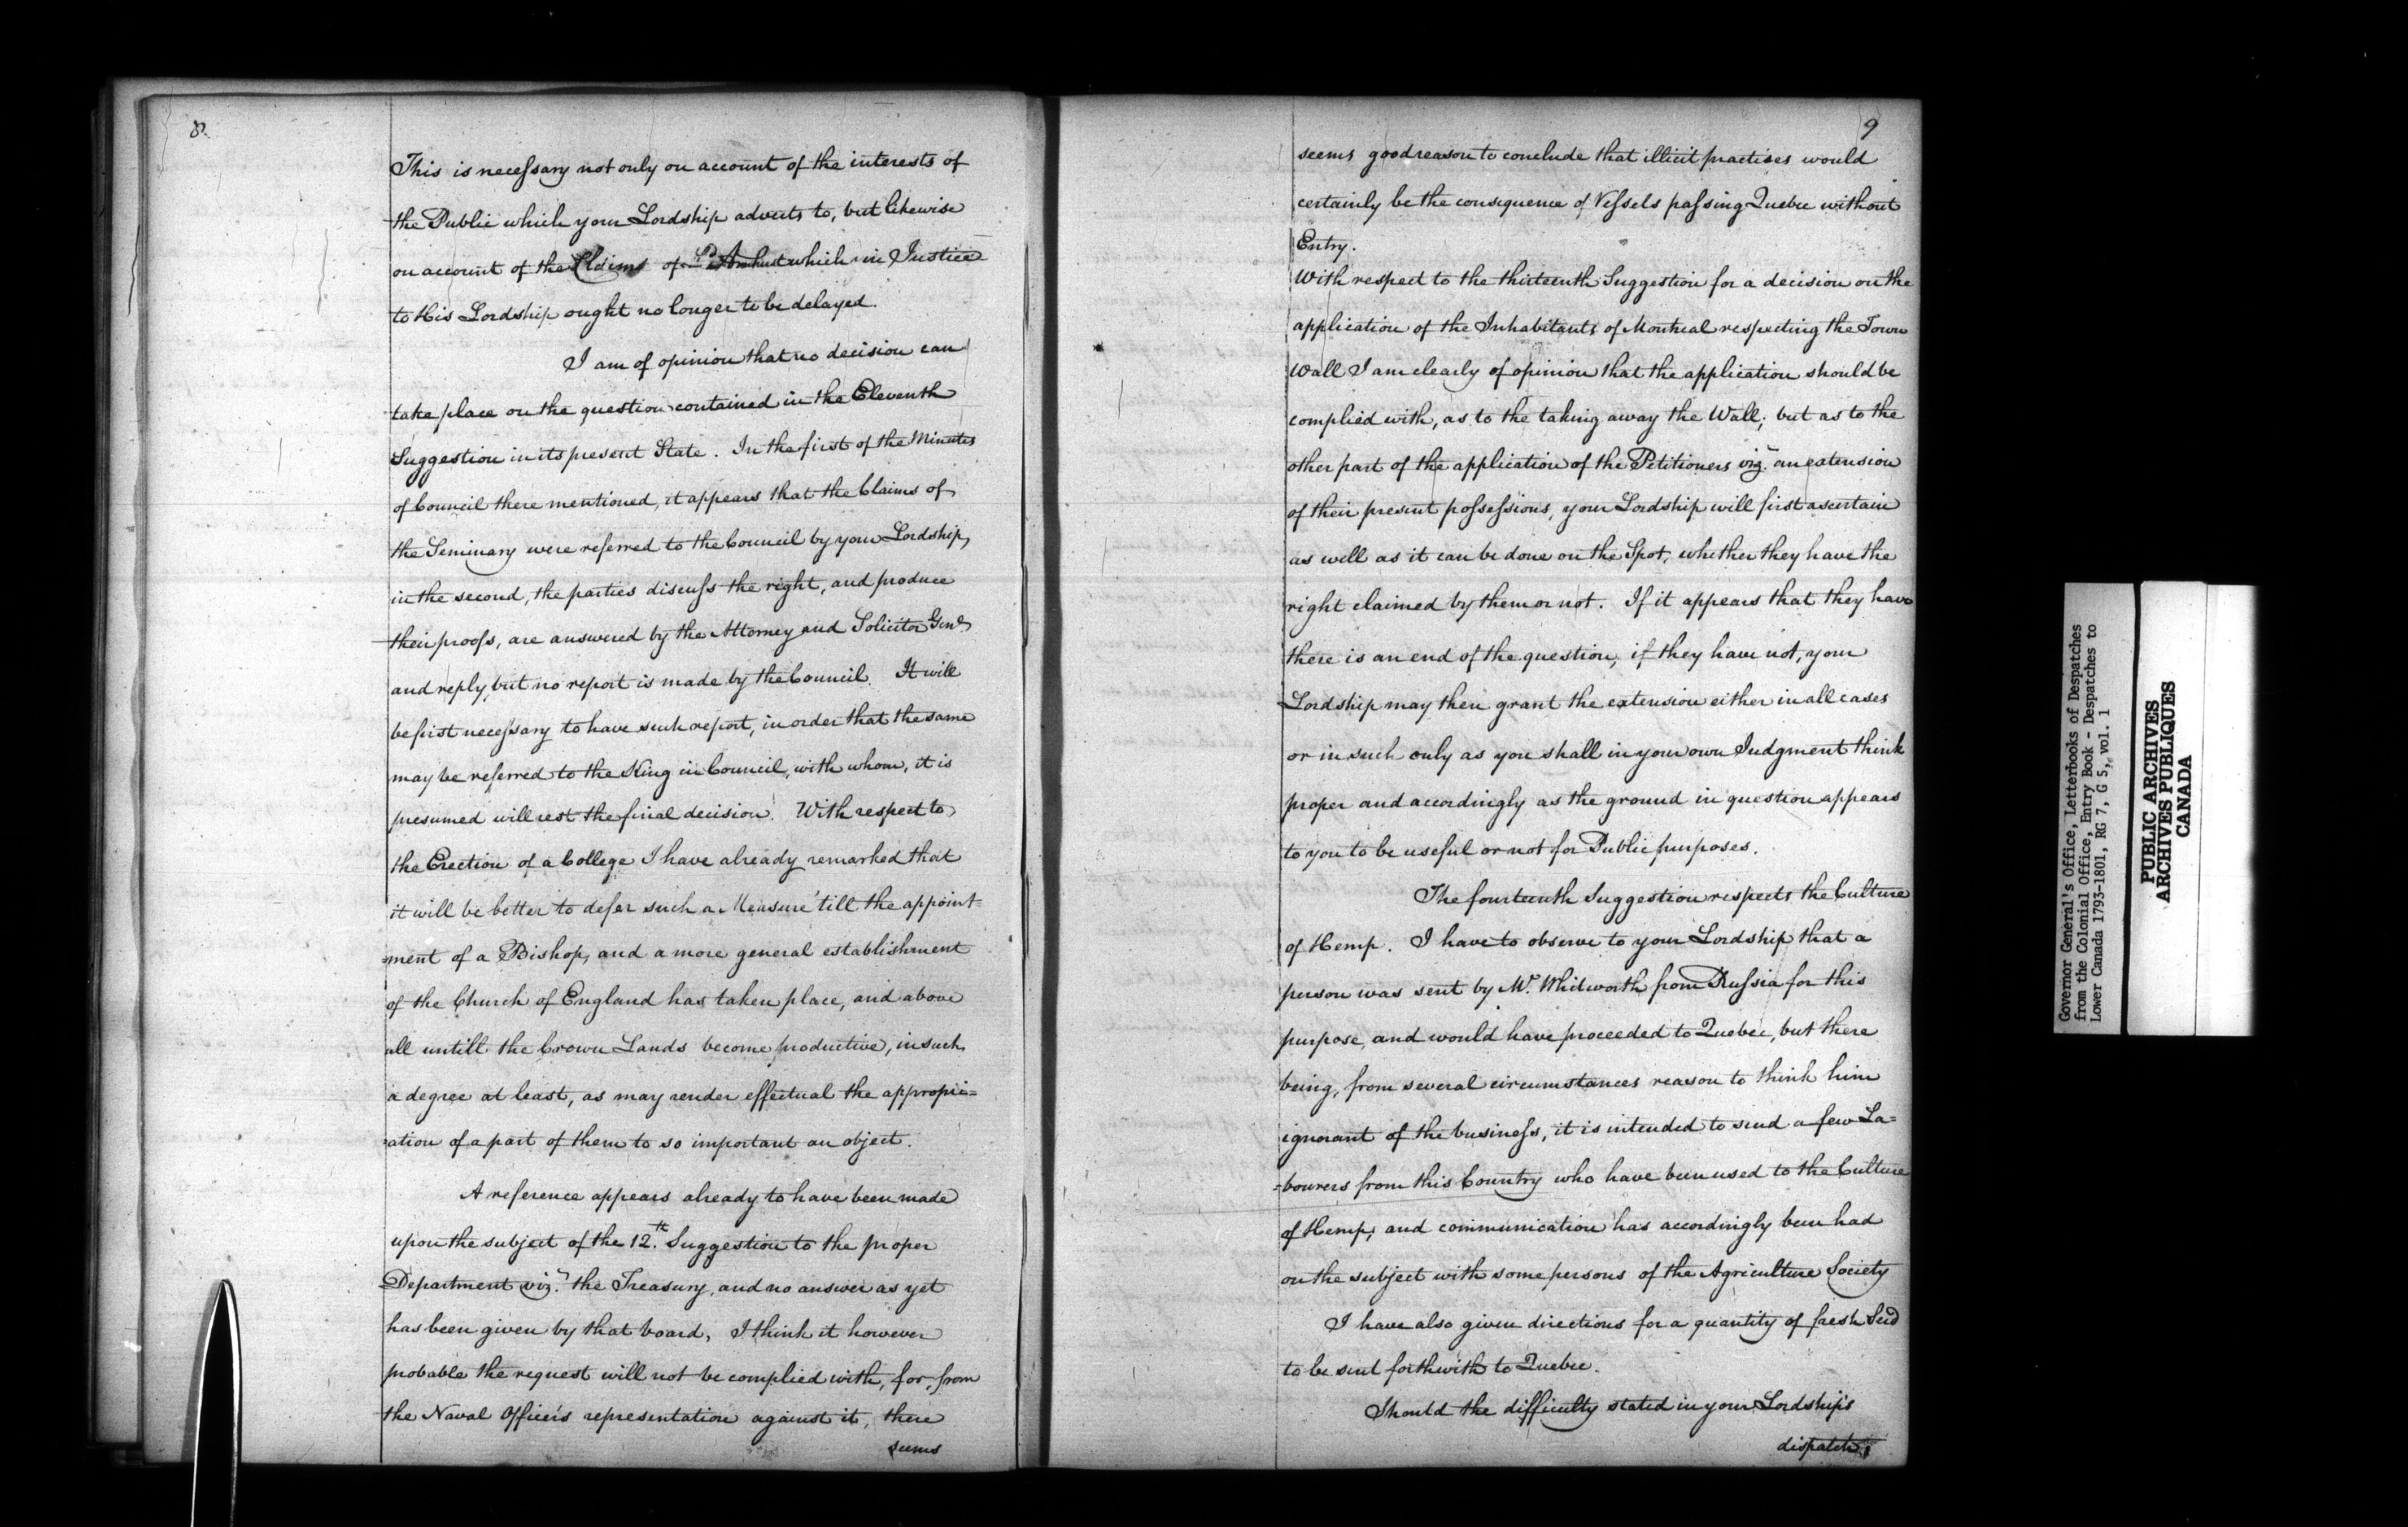 8.
This is necessary not only on account of the interests of
the Public which your Lordship adverts to, but likewise
on account of the Claims of Ld. Amherst which in Justice
to His Lordship ought no longer to be delayed.
I am of opinion that no decision can
take place on the question contained in the Eleventh
Suggestion in its present State. In the first of the Minutes
of Council there mentioned, it appears that the Claims of
the Seminary were referred to the Council by your Lordship,
in the second, the parties discuss the right, and produce
their proofs, are answered by the Attorney and Solicitor Genl.
and reply, but no report is made by the Council. It will
be first necessary to have such report, in order that the same
may be referred to the King in Council, with whom, it is
presumed will rest the final decision. With respect to
the Erection of a College I have already remarked that
it will be better to defer such a Measure 'till the appoint=
=ment of a Bishop, and a more general establishment
of the Church of England has taken place, and above
all untill the Crown Lands become productive, in such
a degree at least, as may render effectual the appropri=
=ation of a part of them to so important an object.
A reference appears already to have been made
upon the subject of the 12.th Suggestion to the proper
Department viz.t the Treasury, and no answer as yet
has been given by that board, I think it however
probable the request will not be complied with, for, from
the Naval Officer's representation against it, there
seems
9
seems good reason to conclude that illicit practises would
certainly be the consequence of Vessels passing Quebec without
Entry.
With respect to the thirteenth Suggestion for a decision on the
application of the Inhabitants of Montreal respecting the Town
Wall I am clearly of opinion that the application should be
complied with, as to the taking away the Wall; but as to the
other part of the application of the Petitioners viz.t an extension
of their present possessions, your Lordship will first ascertain
as well as it can be done on the Spot, whether they have the
right claimed by them or not. If it appears that they have
there is an end of the question, if they have not, your
Lordship may then grant the extension either in all cases
or in such only as you shall in your own Judgment think
proper and accordingly as the ground in question appears
to you to be useful or not for Public purposes.
The fourteenth Suggestion respects the Culture
of Hemp. I have to observe to your Lordship that a
person was sent by Mr. Whitworth from Russia for this
purpose, and would have proceeded to Quebec, but there
being, from several circumstances reason to think him
ignorant of the business, it is intended to send a few La=
=bourers from this Country who have been used to the Culture
of Hemp, and communication has accordingly been had
on the subject with some persons of the Agriculture Society
I have also given directions for a quantity of fresh Seed
to be sent forthwith to Quebec.
Should the difficulty stated in your Lordship's
dispatch
Governor General's Office, Letterbooks of Despatches
from the Colonial Office, Entry Book - Despatches to
Lower Canada 1793-1801, RG 7, G 5, vol. 1
PUBLIC ARCHIVES
ARCHIVES PUBLIQUES
CANADA